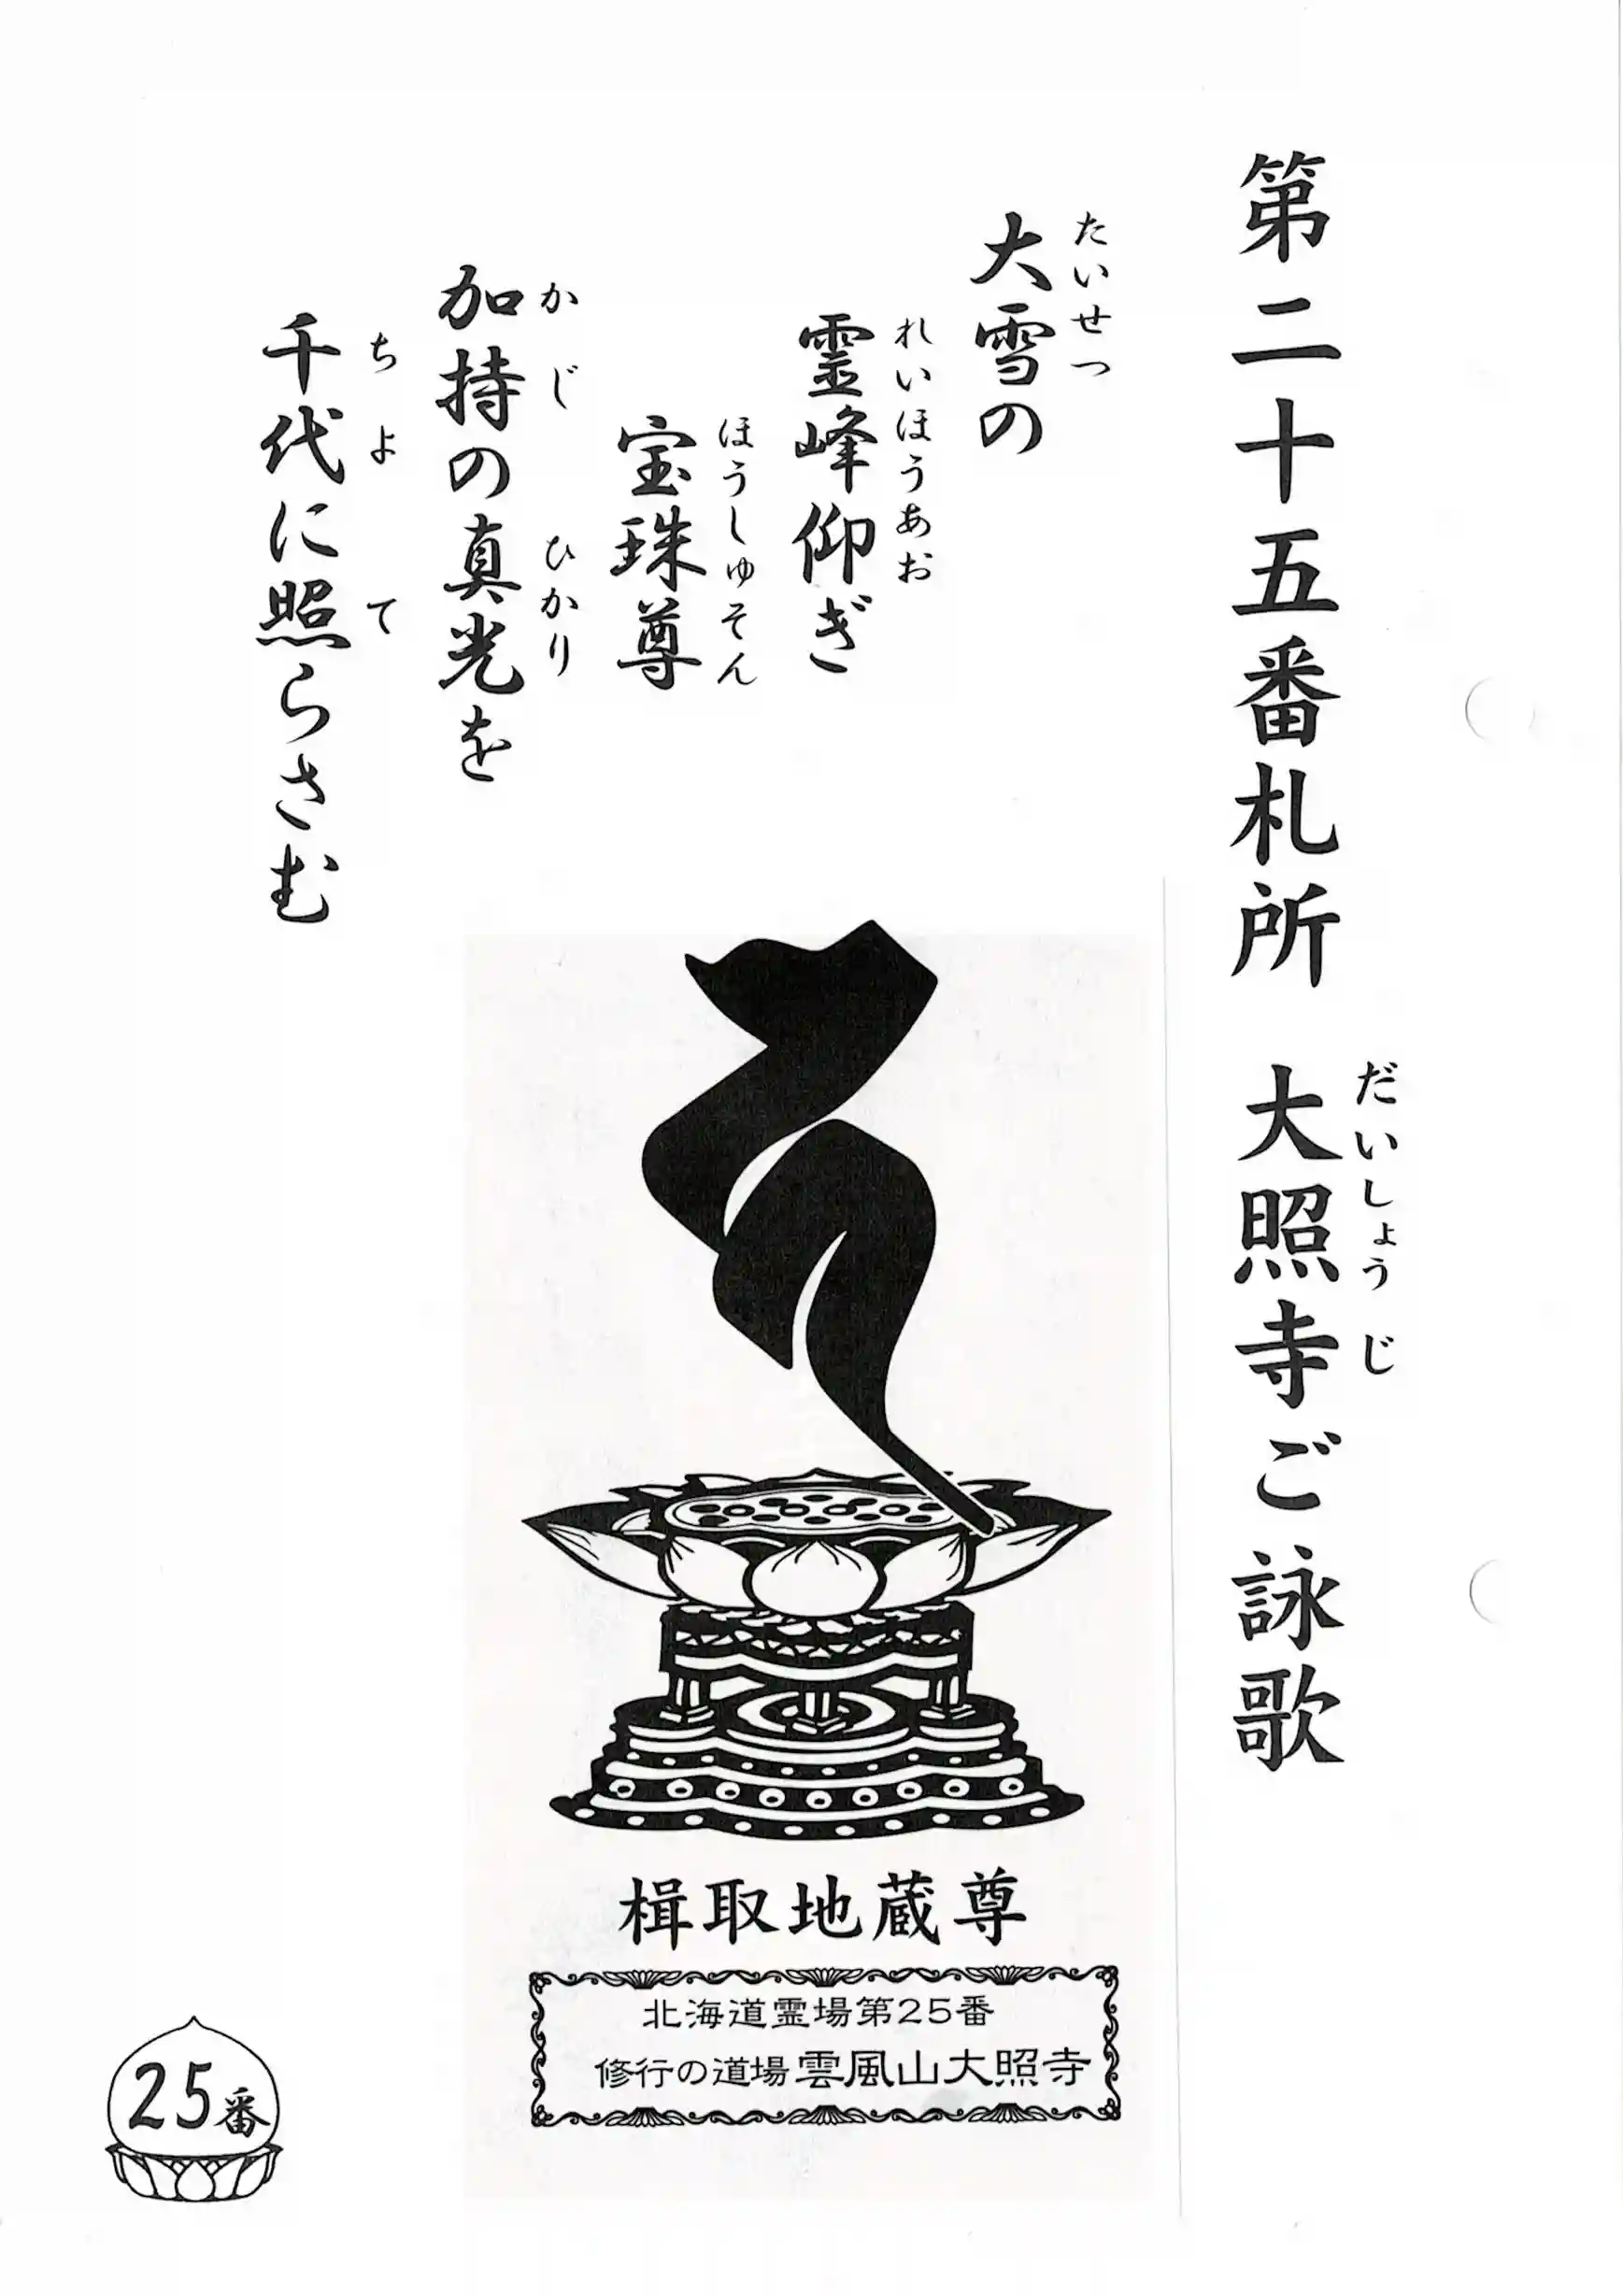 第二十五番札所 大照寺ご詠歌
だいしょうじ
大雪の
たいせつ
霊峰仰ぎ
れいほうあお
宝珠尊
ほうしゅそん
加持の真光を
かじ ひかり
千代に照らさむ
ちよ て
楫取地蔵尊
北海道霊場第25番
修行の道場 雲風山大照寺
25番